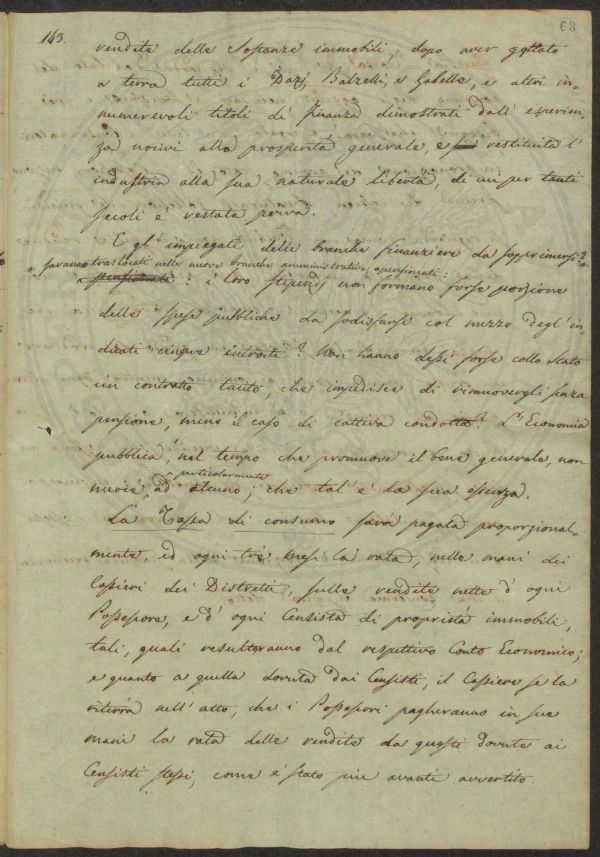 143.
68
vendite delle Sostanze immobili, dopo aver gettato
a terra tutti i Dazj, Balzelli, e Gabelle, e altri in-
numerevoli titoli di Finanza dimostrati dall' esperien-
za nocivi alla prosperità generale, e restituita l'
industria alla sua naturale libertà, di cui per tanti
secoli è restata priva.
E gl' impiegati delle branche finanziere da sopprimersi?
saranno traslocati nelle nuove branche amministrative, o pensionati:
i loro stipendj non formano forse porzione
delle spese pubbliche da sodisfarsi col mezzo degl' in-
dicati cinque introiti? Non hanno dessi forse collo Stato
un contratto tacito, che impedisce di rimuovergli senza
pensione, meno il caso di cattiva condotta? L' Economia
pubblica, nel tempo che promuove il bene generale, non
particolarmente
nuoce ad alcuno; che tal' è la sua essenza.
La Tassa di consumo sarà pagata proporzional-
mente, ed ogni tre mesi la rata, nelle mani dei
Cassieri dei Distretti, sulle vendite nette d' ogni
Possessore, e d' ogni Censista di proprietà immobili,
tali, quali resulteranno dal respettivo Conto Economico;
e quanto a quella dovuta dai Censisti, il Cassiere se la
riterrà nell' atto, che i Possessori pagheranno in sue
mani la rata delle vendite da questi dovute ai
Censisti stessi, come è stato più avanti avvertito.